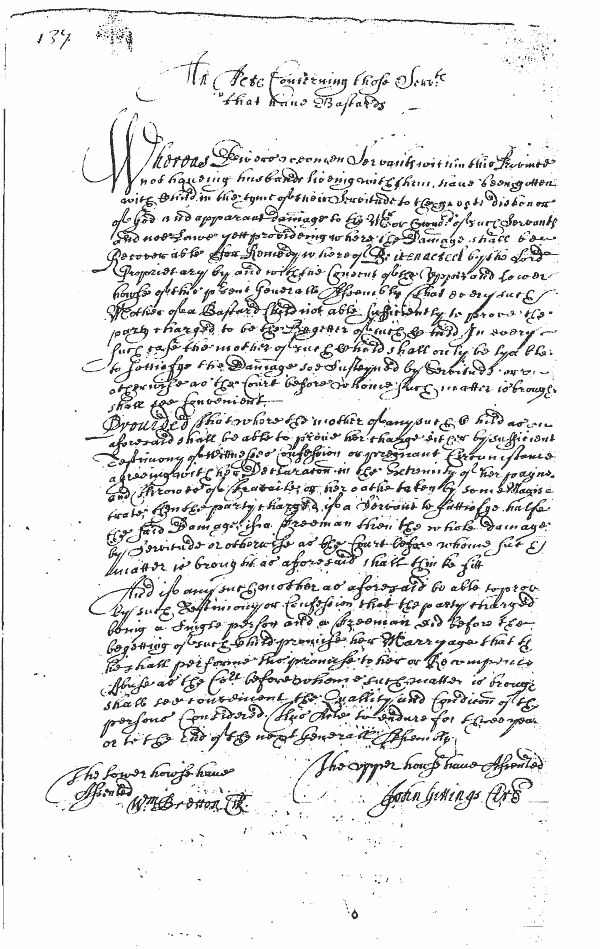 137
An Acte Concerning those Servts
that have Bastards
Whereas Divers weomen Servants within this Province
not haveing husbands liveing with them, have been gotten
with Child in the tyme of their Servitude to the great dishonor
of God and apparant damage to the Mrs or Owners of such Servants
and noe Lawe yett provideing where the Damage shall bee
Recoverable ffor Remedy whereof Be it enacted by the Lord
Proprietary by and with the Consent of the Upper and Lower
howse of this present Generall Assembly That every such
Mother of a Bastard Child not able sufficiently to prove the
party charged to be the Begetter of such Child In every
such case the mother of such Child shall only be lyable
to sattisfye the Damage soe susteyned by Servitude or
otherwise as the Court before whome such matter is brough
shall see Convenient
Provided that where the mother of any such Child as
aforesaid shall be able to prove her charge either by sufficient
Testimony of wittnesses Confession or pregnant Circumstance
agreeing with her Declaraton in the extremity of her payne
and throwes of Travaile or her oathe taken by some Magis
trate then the party charged if a Servant to sattisfye halfe
the said Damage, if a Freeman then the whole damage
by Servitude or otherwise as the Court before whome such
matter is brought as aforesaid shall think fitt
And if any such mother as aforesaid be able to prov
by such Testimony or Confession that the party charged
being a single person and a Freeman did before the
begetting of such Child promise her Marryage that th
hee shall performe his promise to her or Recompence
Abuse as the Court before whome such matter is brough
shall see convenient the Quallity and Condicon of the
persons Considered, this Acte to endure for three year
or to the End of the next Generall Assembly
The lower howse have
Assented
Wm Bretton Clk
The upper howse have Assented
John Gittings Clre